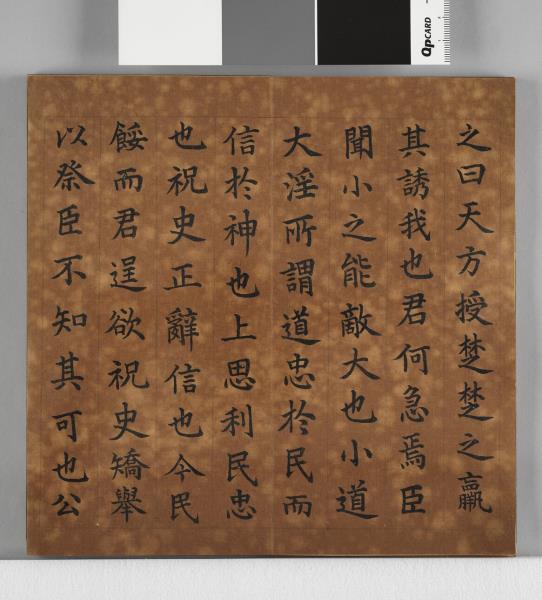 QPCARD
之曰天方授楚楚之羸
其誘我也君何急焉臣
聞小之能敵大也小道
大淫所謂道忠於民而
信於神也上思利民忠
也祝史正辭信也今民
餒而君逞欲祝史矯舉
以祭臣不知其可也公